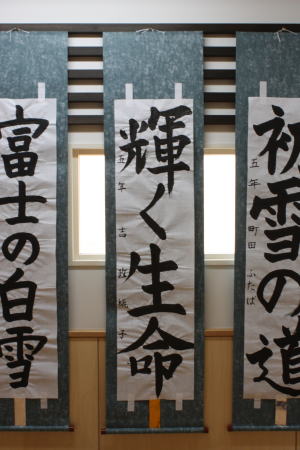 初雪の道
五年 町田 ふたば
輝く生命
五年 吉 桃子
富士の白雪